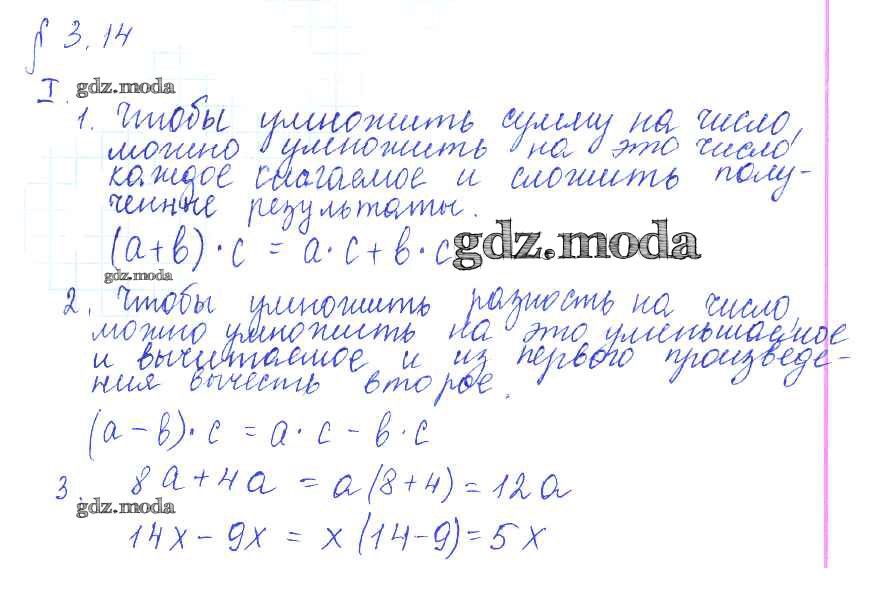 § 3.14
gdz.moda
I.
1. Чтобы умножить сумму на число,
можно умножить на это число
каждое слагаемое и сложить полу-
ченные результаты.
(a+b)·c = a·c+b·c
gdz.moda
gdz.moda
2. Чтобы умножить разность на число,
можно умножить на это уменьшаемое
и вычитаемое и из первого произведе-
ния вычесть второе.
(a-b)·c = a·c-b·c
3. 8a+4a = a(8+4)=12a
gdz.moda
14x-9x = x(14-9)=5x